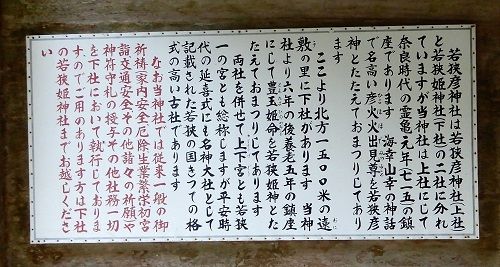 若狭彦神社は若狭彦神社(上社)
と若狭姫神社(下社)の二社に分れ
ていますが当神社は上社にして
奈良時代の霊亀元年(七一五)の鎮
座であります　海幸山幸の神話
で名高い彦火火出見尊を若狭彦
神とたたえておまつりしており
ます
ここより北方一五〇〇米の遠
敷の里に下社があります　当神
社より六年の後養老五年の鎮座
にして豊玉姫命を若狭姫神とた
たえておまつりしてあります
両社を併せて上下宮とも若狭
一の宮とも総称しますが平安時
代の延喜式にも名神大社として
記載された若狭の国きっての格
式の高い古社であります
なお当神社では従来一般の御
祈祷家内安全厄除生業繁栄初宮
詣交通安全その他諸々の祈願や
神符守札の授与その他社務一切
を下社において執行しておりま
すのでご用のあります方は下社
の若狭姫神社までお越しくださ
い